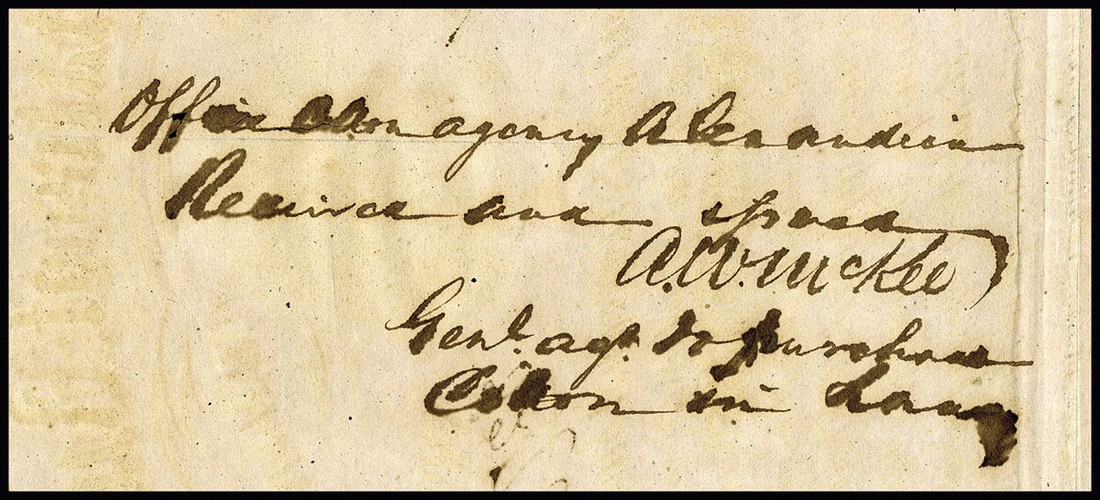 Office Cotton agency Alexandria
Received and
A. W. McKee
Genl. agt. to purchase
Cotton in